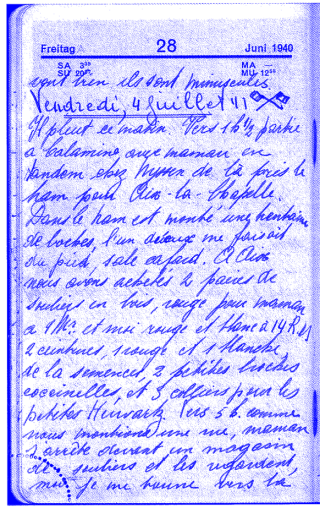 Freitag 28 Juni 1940
SA 3 MA —
SU 20 MU 12
vont bien ils sont minuscules
Vendredi, 4 Juillet 41
Il pleut ce matin. Vers 1 h ½ partie
à Calamine avec maman en
tandem chez Nyssen de là pris le
tram pour Aix-la-Chapelle
Dans le tram est monté une trentaine
de boches, l'un d'eux me faisait
du pied, sale cafard. A Aix
nous avons achetés 2 paires de
souliers en bois, rouge pour maman
à 9 M. et moi rouge et blanc à 14 R.M
2 ceintures, 1 rouge et 1 blanche,
de la semences, 2 petites broches
coccinelles, et 3 colliers pour les
petites Vers 5 h. comme
nous montions une rue, maman
s'arrête devant un magasin
de souliers et les regardent,
moi je me tourne vers la